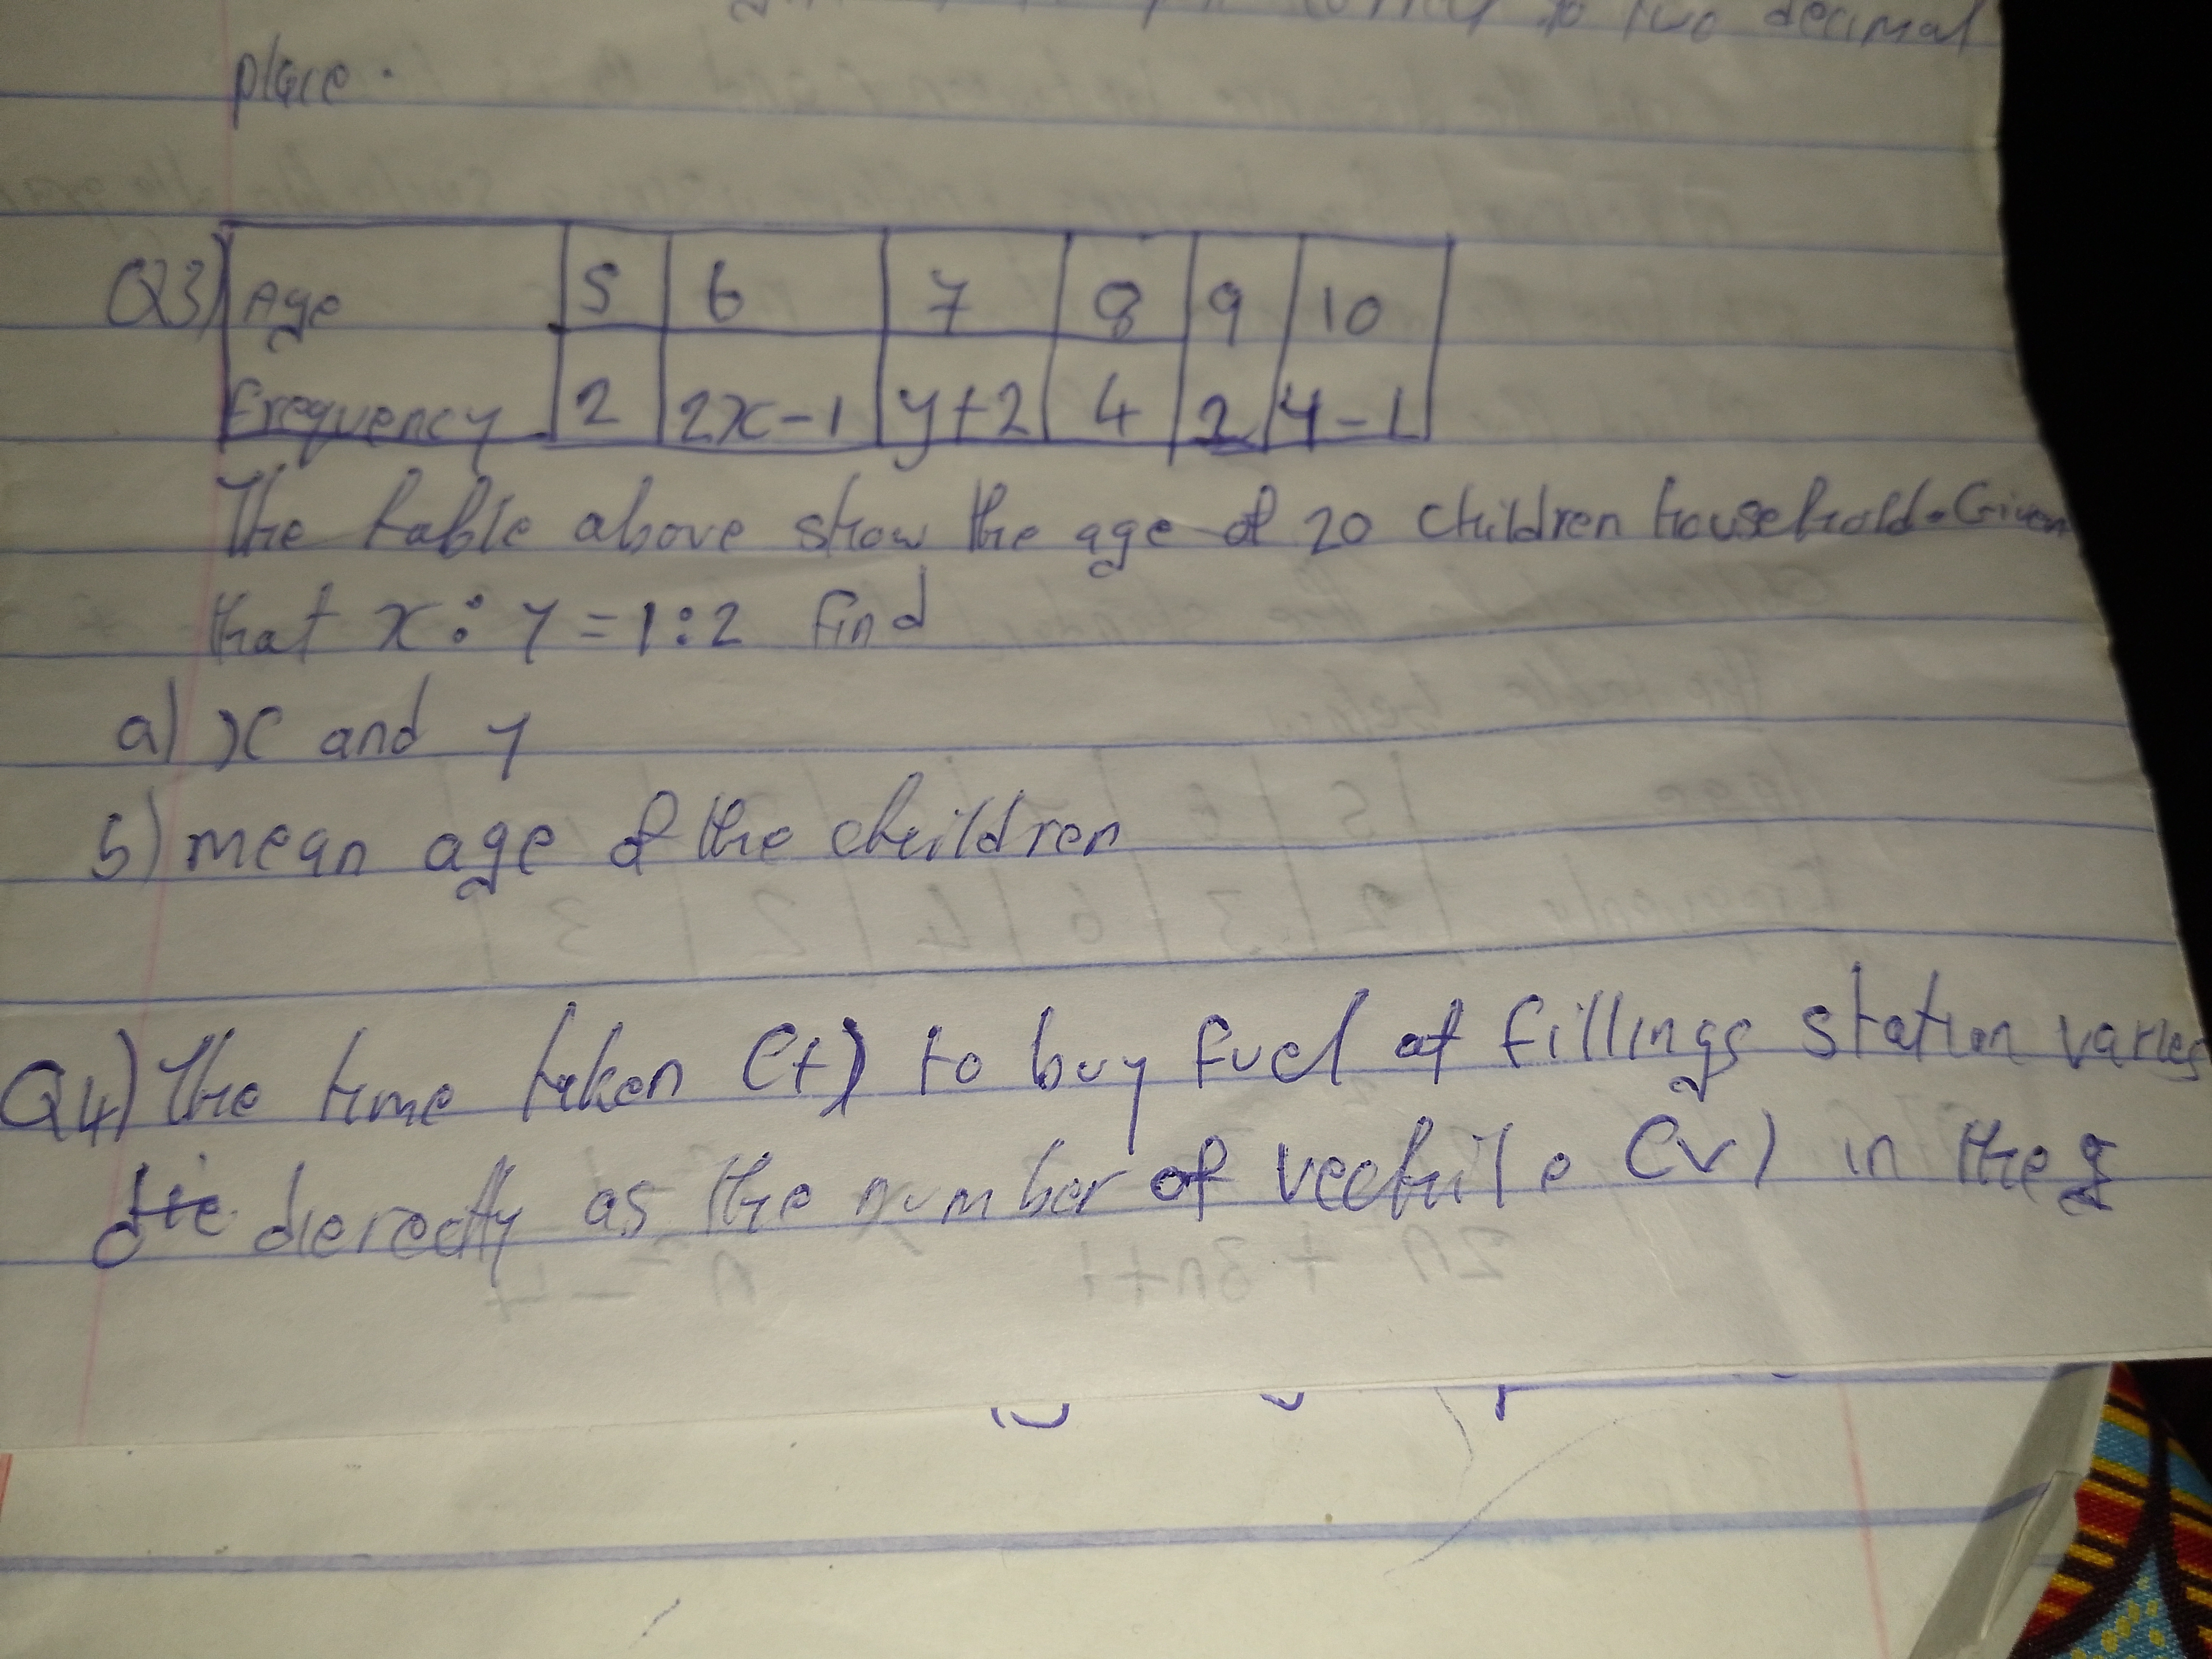 to two decimal
place.
Q3) Age 5 6 7 8 9 10
Frequency 2 2x-1 y+2 4 2 y-1
The table above show the age of 20 children household. Given
that x : y = 1:2 find
a) x and y
b) mean age of the children
Q4) The time taken (t) to buy fuel at fillings station varies
dierectly as the number of vechile (v) in the